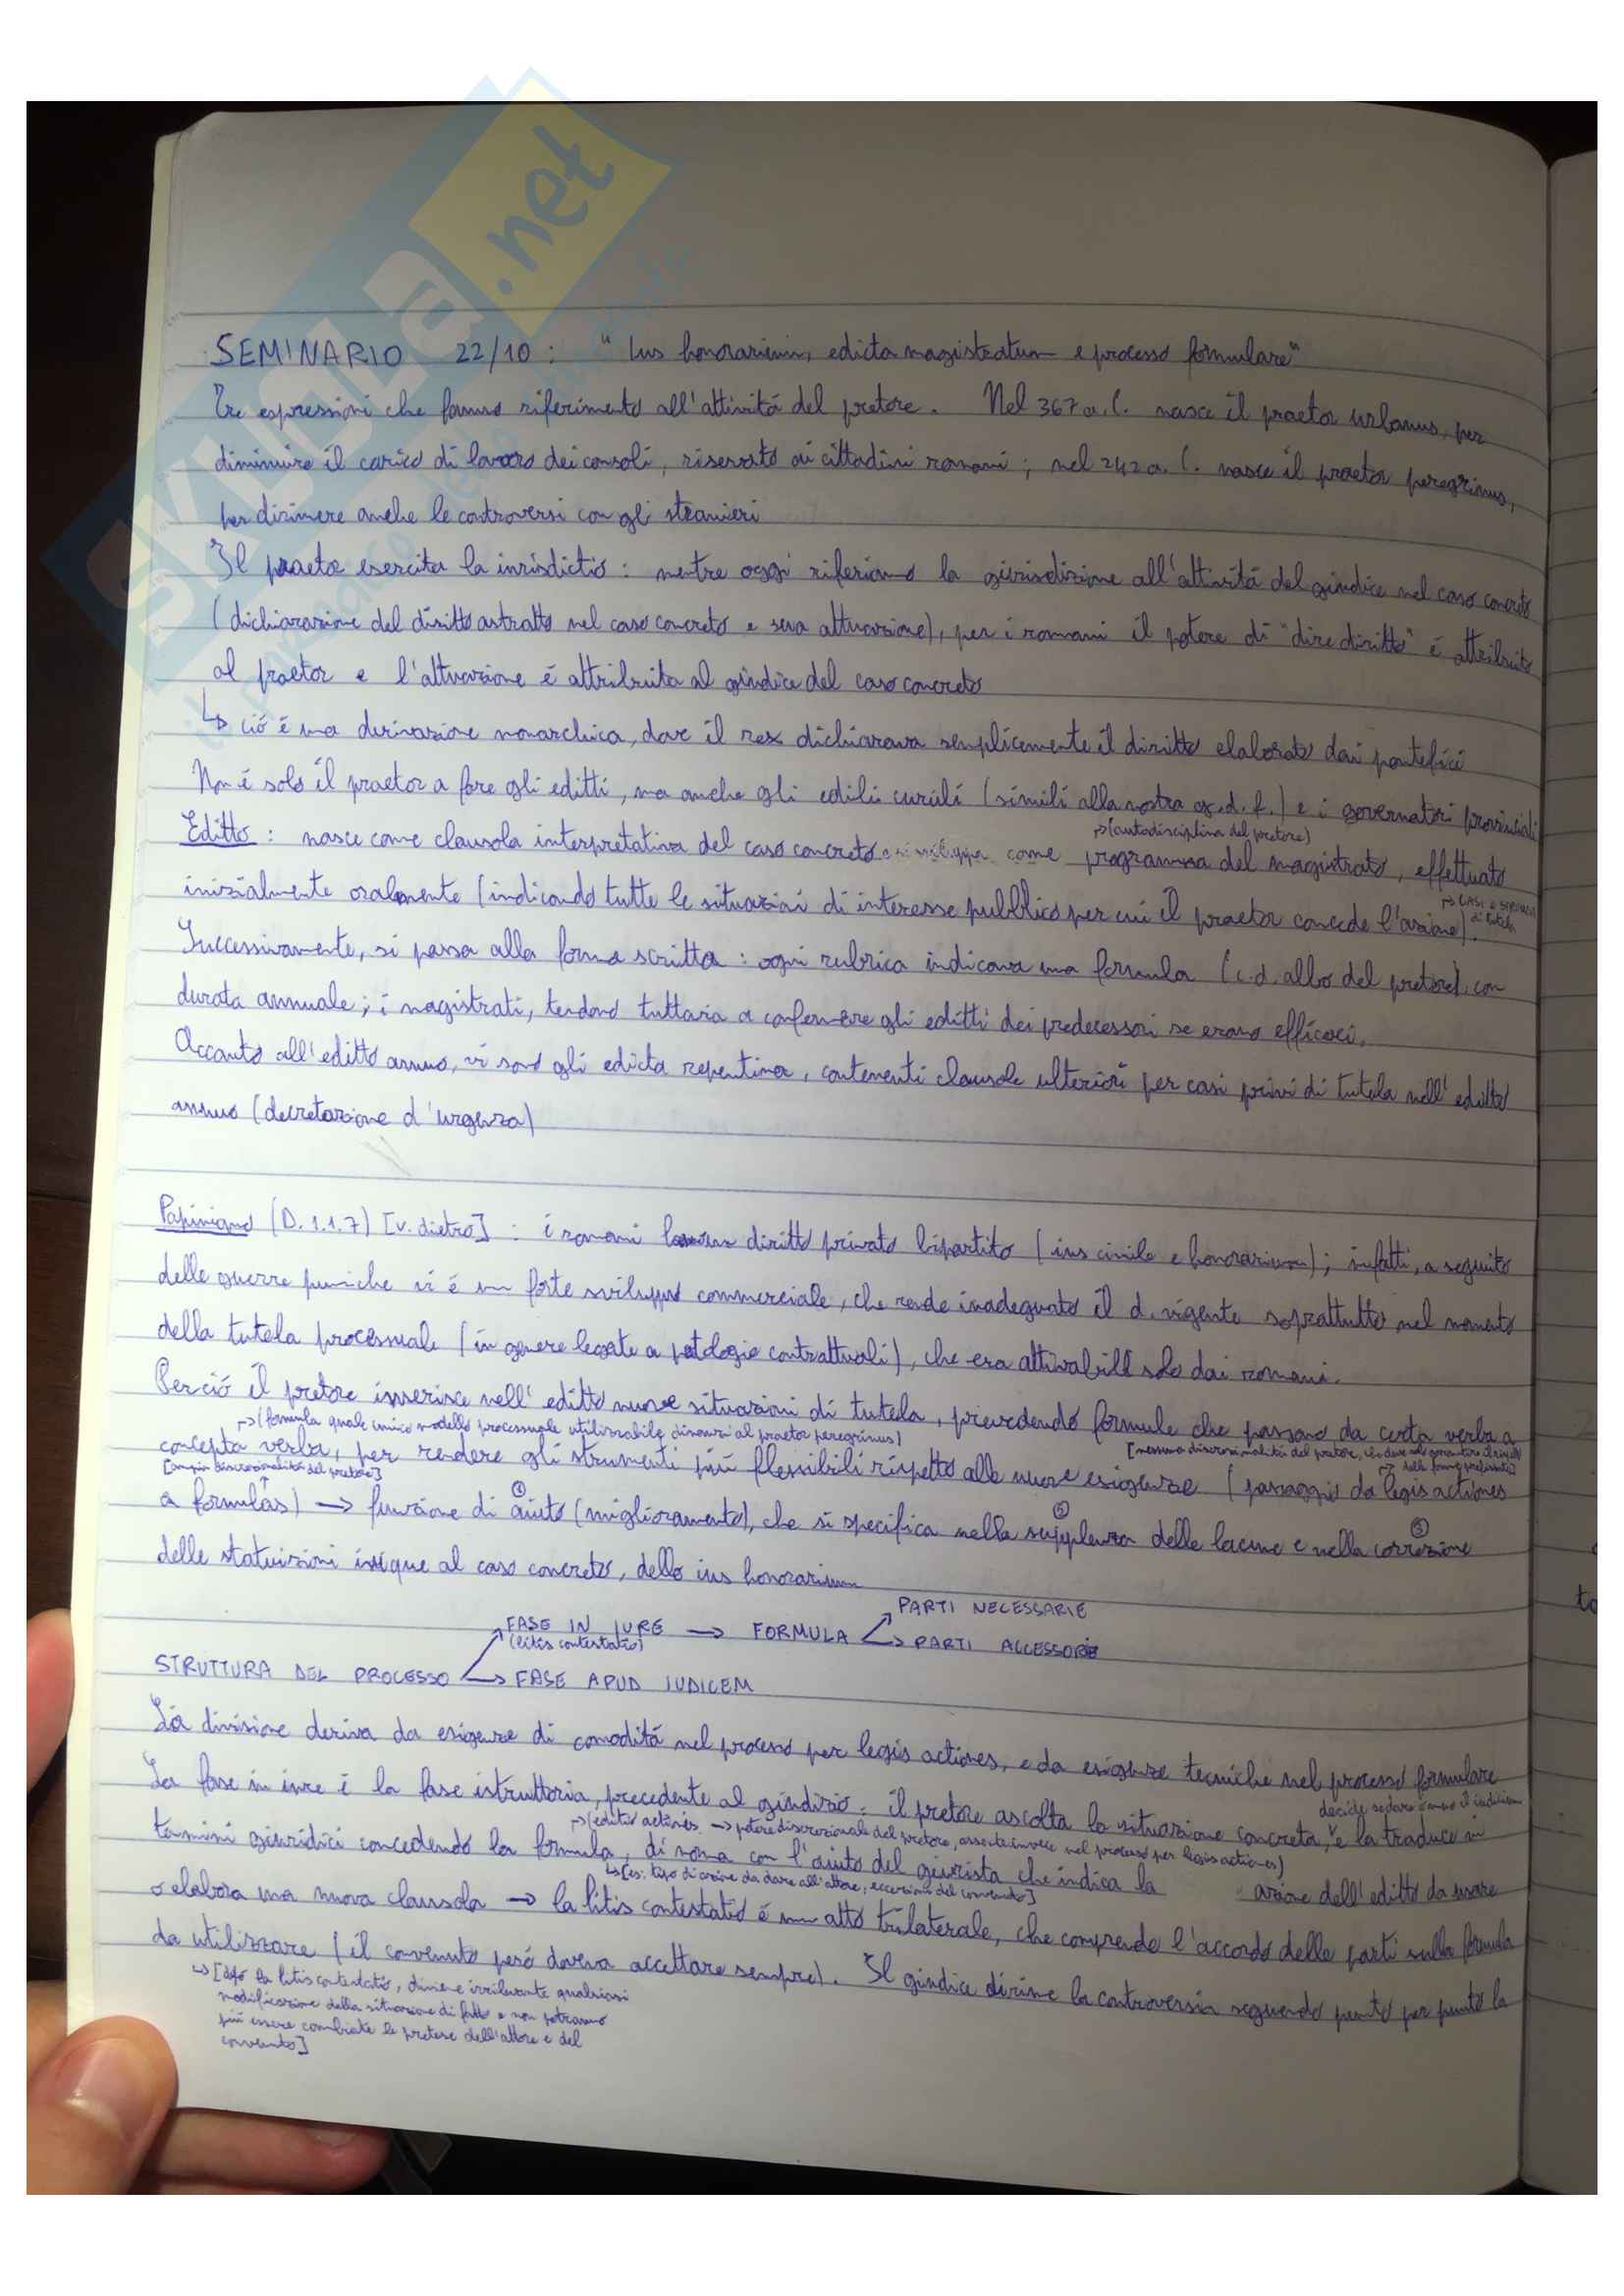 SKUOLA.net
SEMINARIO 22/10 : "Ius honorarium, edicta magistratum e processo formulare"
Tre espressioni che fanno riferimento all'attività del pretore. Nel 367 a.C. nasce il praetor urbanus, per
diminuire il carico di lavoro dei consoli, riservato ai cittadini romani; nel 242 a.C. nasce il praetor peregrinus,
per dirimere anche le controversi con gli stranieri
Il praetor esercita la iurisdictio : mentre oggi riferiamo la giurisdizione all'attività del giudice nel caso concreto
(dichiarazione del diritto astratto nel caso concreto e sua attuazione), per i romani il potere di "dire diritto" é attribuito
al praetor e l'attuazione é attribuita al giudice del caso concreto
↳ ció é una derivazione monarchica, dove il rex dichiarava semplicemente il diritto elaborato dai pontefici
Non é solo il praetor a fare gli editti, ma anche gli edili curuli (simili alla nostra g.d.f.) e i governatori provinciali
→(autodisciplina del pretore)
Editto : nasce come clausola interpretativa del caso concreto e si sviluppa come programma del magistrato, effettuato
→ CASI e STRUMENTI di tutela
inizialmente oralmente (indicando tutte le situazioni di interesse pubblico per cui il praetor concede l'azione).
Successivamente, si passa alla forma scritta : ogni rubrica indicava una formula (c.d. albo del pretore), con
durata annuale; i magistrati, tendono tuttavia a confermare gli editti dei predecessori se erano efficaci.
Accanto all'editto annuo, vi sono gli edicta repentina, contenenti clausole ulteriori per casi privi di tutela nell'editto
annuo (decretazione d'urgenza)
Papiniano (D.1.1.7) [v. dietro] : i romani hanno un diritto privato bipartito (ius civile e honorarium); infatti, a seguito
delle guerre puniche vi é un forte sviluppo commerciale, che rende inadeguato il d. vigente soprattutto nel momento
della tutela processuale (in genere legate a patologie contrattuali), che era attivabile solo dai romani.
Perció il pretore inserisce nell'editto nuove situazioni di tutela, prevedendo formule che passano da certa verba a
→(formula quale unico modello processuale utilizzabile dinanzi al praetor peregrinus)
[nessuna discrezionalità del pretore, che deve solo garantire il rispetto delle forme prefissate]
concepta verba, per rendere gli strumenti più flessibili rispetto alle nuove esigenze (passaggio da legis actiones
[ampia discrezionalità del pretore]
a formulas) → funzione di ① aiuto (miglioramento), che si specifica nella ② supplenza delle lacune e nella ③ correzione
delle statuizioni inique al caso concreto, dello ius honorarium
PARTI NECESSARIE
FASE IN IURE → FORMULA
(litis contestatio)
PARTI ACCESSORIE
STRUTTURA DEL PROCESSO
FASE APUD IUDICEM
La divisione deriva da esigenze di comodità nel processo per legis actiones, e da esigenze tecniche nel processo formulare
La fase in iure é la fase istruttoria, precedente al giudizio : il pretore ascolta la situazione concreta, e la traduce in
decide se dare o meno il iudicium
→(editio actionis → potere discrezionale del pretore, assente invece nel processo per legis actiones)
termini giuridici concedendo la formula, di norma con l'aiuto del giurista che indica la azione dell'editto da usare
↳[es: tipo di azione da dare all'attore, eccezioni del convenuto]
o elabora una nuova clausola → la litis contestatio é un atto trilaterale, che comprende l'accordo delle parti sulla formula
da utilizzare (il convenuto peró doveva accettare sempre). Il giudice dirime la controversia seguendo punto per punto la
↳ [dopo la litis contestatio, diviene irrilevante qualsiasi
modificazione della situazione di fatto e non potranno
più essere cambiate le pretese dell'attore e del
convenuto]